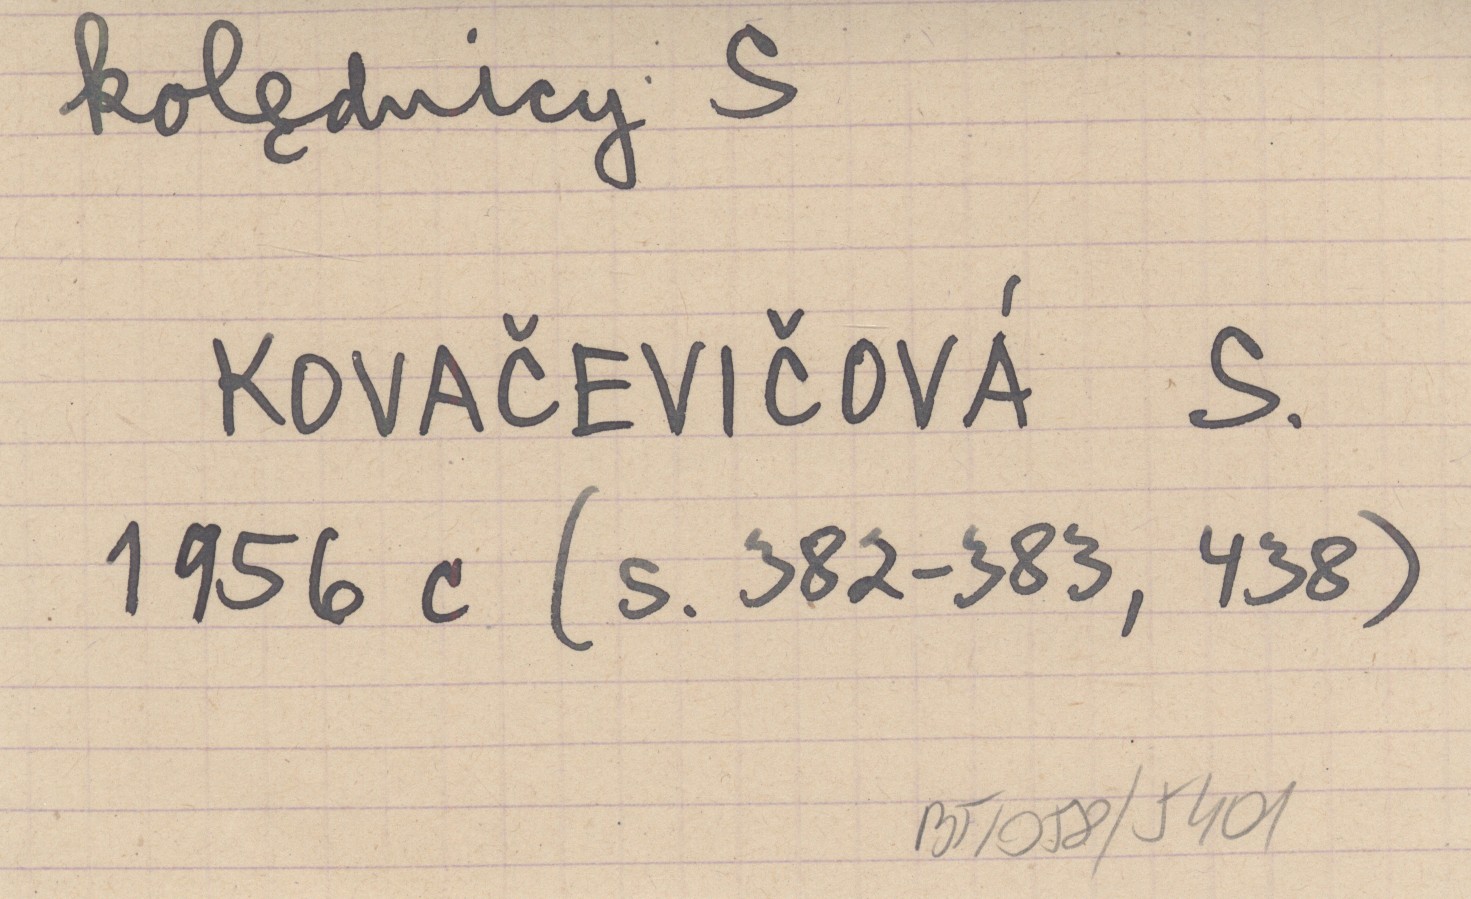 kolędnicy S
KOVAČEVIČOVÁ S.
1956 c (s. 382-383, 438)
BT/058/5401